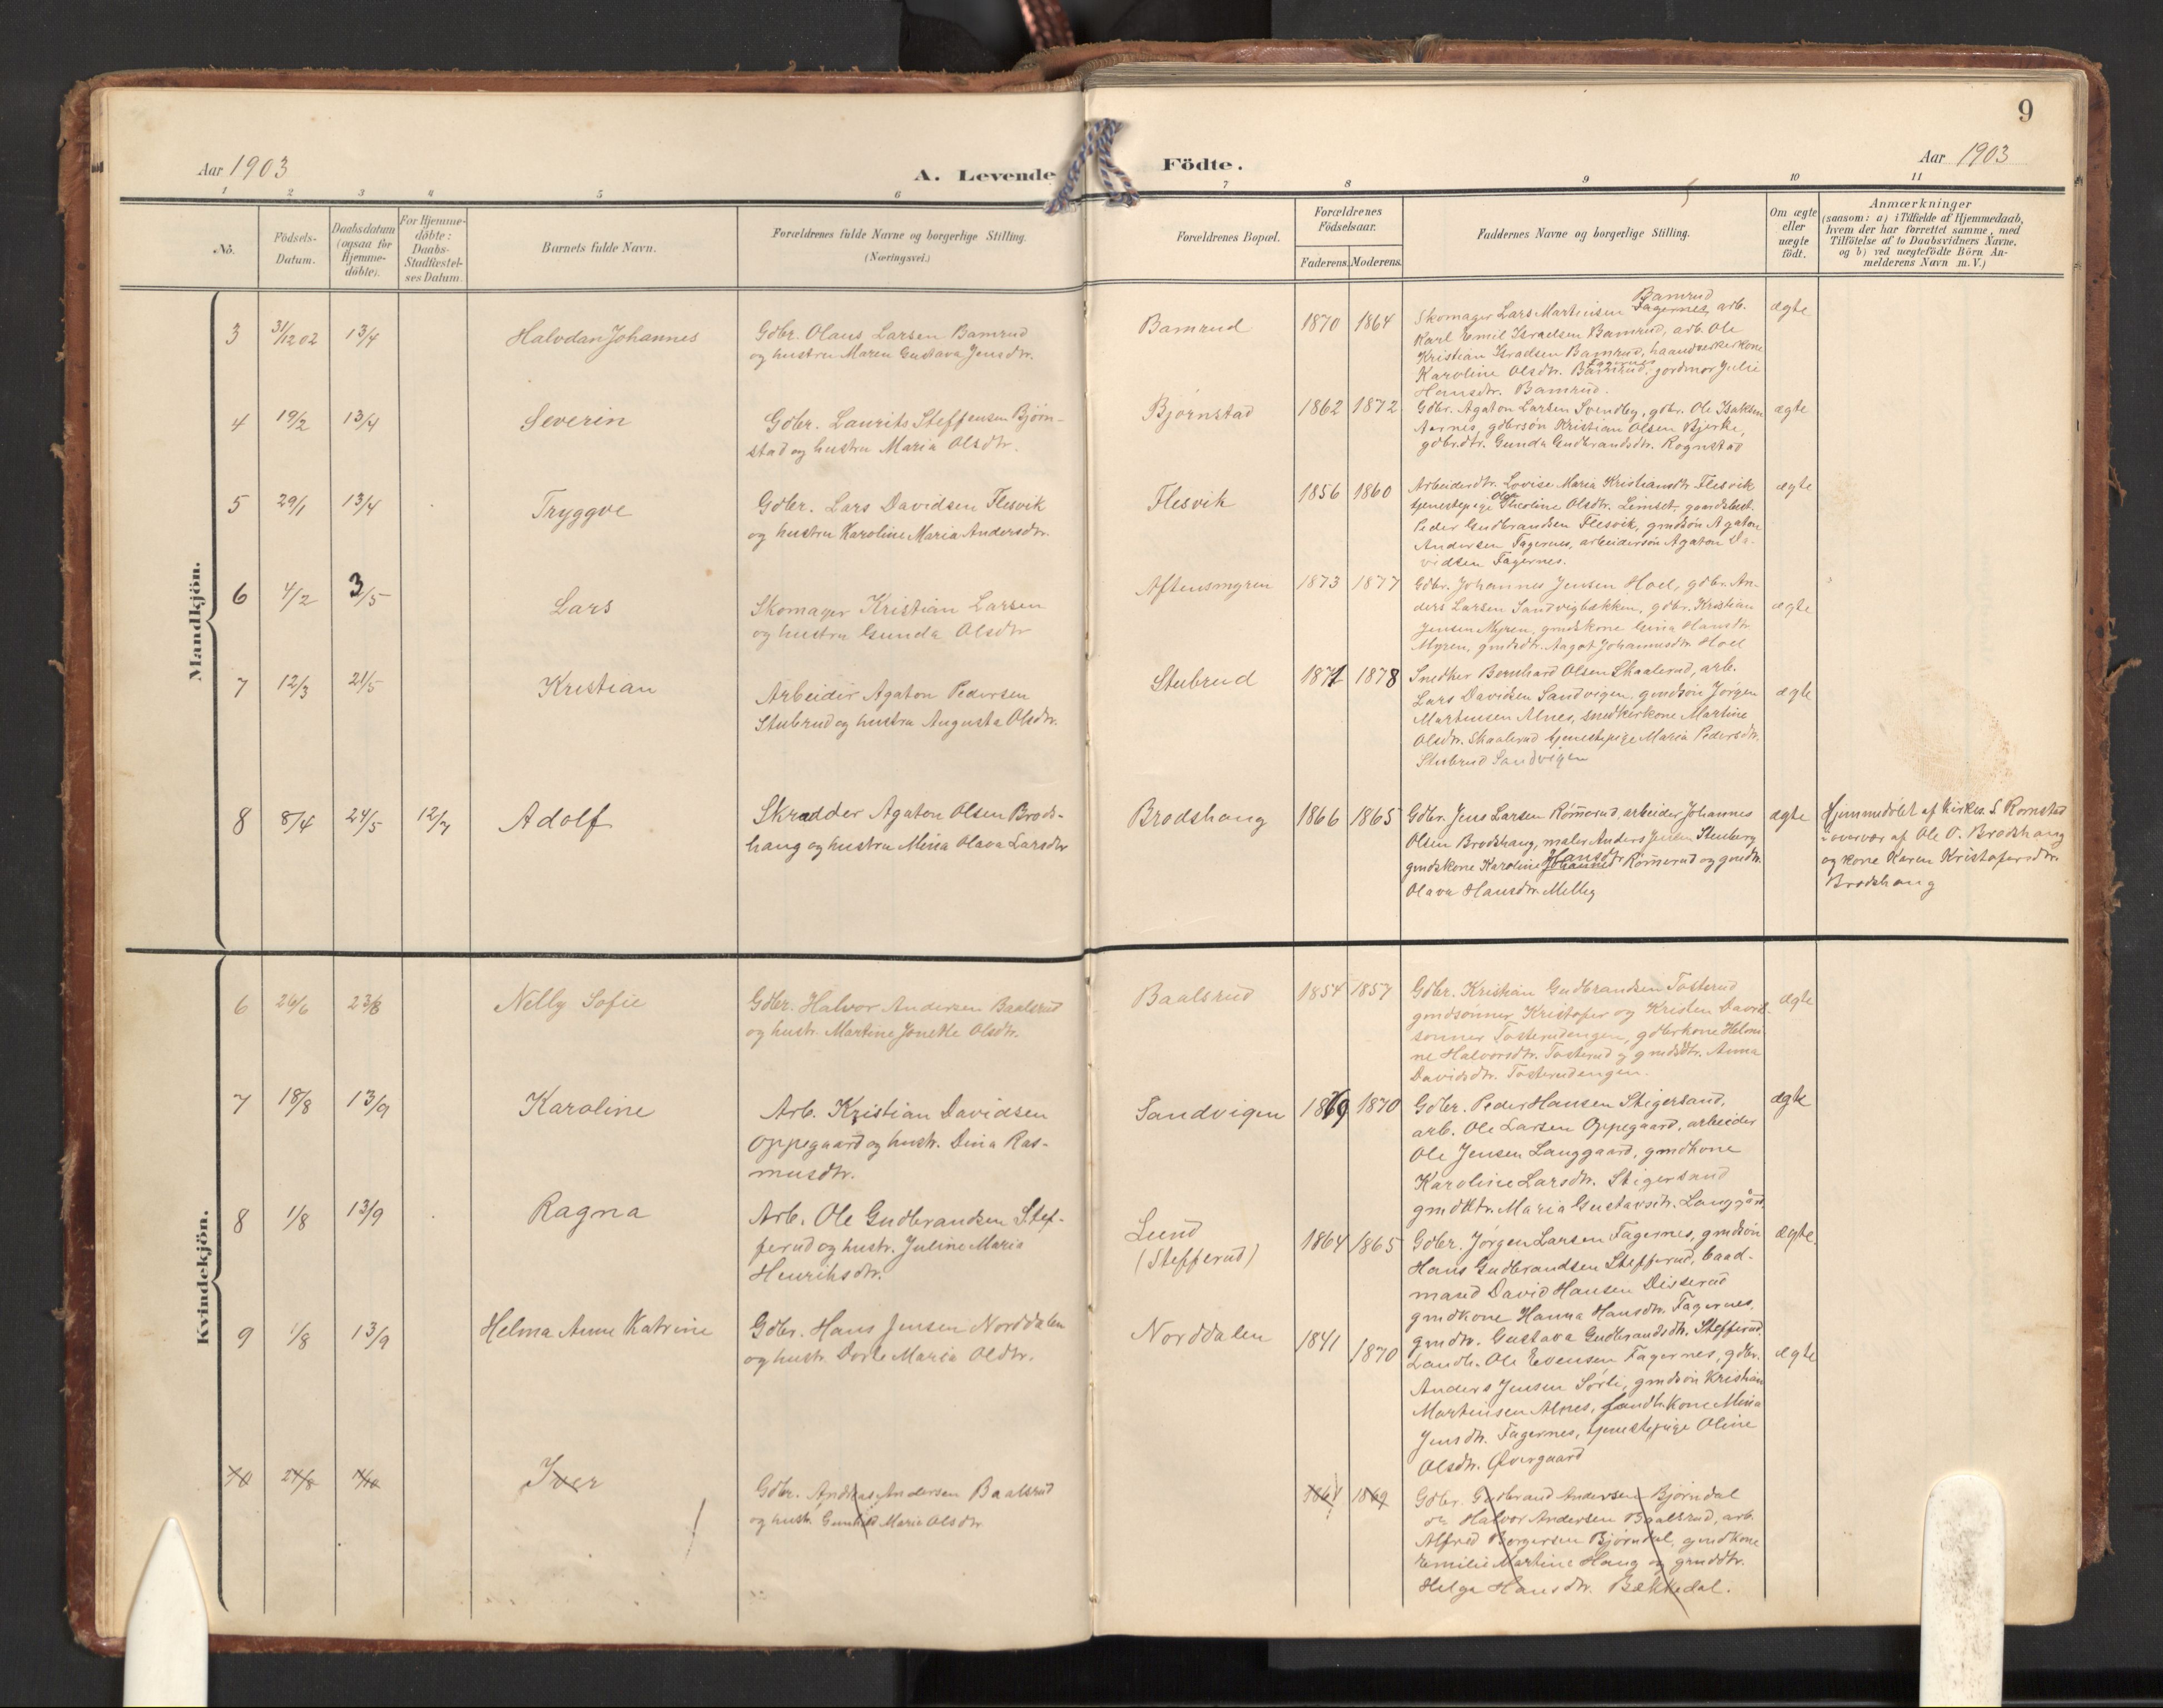 9
Aar 1903
A. Levende Födte.
Aar 1903
1 2 3 4 5 6 7 8 9 10 11
No.
Födsels-
Datum.
Daabsdatum
(ogsaa for
Hjemme-
döbte).
For Hjemme-
döbte:
Daabs-
Stadfæstel-
ses Datum.
Barnets fulde Navn.
Forældrenes fulde Navne og borgerlige Stilling.
(Næringsvei.)
Forældrenes Bopæl.
Forældrenes
Födselsaar.
Faderens. Moderens.
Faddernes Navne og borgerlige Stilling.
Om ægte
eller
uægte
födt.
Anmærkninger
(saasom: a) i Tilfælde af Hjemmedaab,
hvem der har forrettet samme, med
Tilföielse af to Daabsvidners Navne,
og b) ved uægtefödte Börn An-
melderens Navn m. V.)
Mandkjön.
3 31/12 02 13/4 Halvdan Johannes
Gdbr. Olaus Larsen Bamrud
og hustru Maren Gustava Jensdtr.
Bamrud 1870 1864
Bamrud
Skomager Lars Martinsen Fagernes, arb.
Karl Emil Israelsen Bamrud, arb. Ole
Kristian Israelsen Bamrud, haandverkerkone
Fagernes
Karoline Olsdtr. Bamrud, gordmor Julie
Hansdtr. Bamrud.
ægte
4 19/2 13/4 Severin
Gdbr. Laurits Steffensen Bjørn-
stad og hustru Maria Olsdtr.
Bjørnstad 1862 1872
Gdbr. Agaton Larsen Svendby, gdbr. Ole Isaksen
Aarnes, gdbrsøn Kristian Olsen Bjerke,
gdbr.dtr. Gunda Gudbrandsdtr. Rognstad
ægte
5 29/1 13/4 Tryggve
Gdbr. Lars Davidsen Flesvik
og hustru Karoline Maria Andersdtr.
Flesvik 1856 1860
Arbeiderdtr. Lovise Maria Kristiansdtr Flesvik
tjenestepige Theoline Olsdtr. Limset, gaardsbest.
Peder Gudbrandsen Flesvik, gmdsøn Agaton
Andersen Fagernes, arbeidersøn Agaton Da-
vidsen Fagernes.
ægte
6 4/2 3/5 Lars
Skomager Kristian Larsen
og hustru Gunda Olsdtr
Aftensmyren 1873 1877
Gdbr. Johannes Jensen Hoel, gdbr. An-
ders Larsen Sandvigbækken, gdbr. Kristian
Jensen Myren, gmdskone Gina Hansdtr
Myren, gmdsdtr. Aagot Johannesdtr Hoel
ægte
7 12/3 21/5 Kristian
Arbeider Agaton Pedersen
Stubrud og hustru Augusta Olsdtr.
Stubrud 1871 1878
Snedker Bernhard Olsen Skaalerud, arb.
Lars Davidsen Sandvigen, gmdsøn Jørgen
Martinsen Alnes, snedkerkone Martine
Olsdtr. Skaalerud tjenestepige Maria Pedersdtr.
Stubrud Sandvigen
ægte
8 8/4 24/5 12/7 Adolf
Skrædder Agaton Olsen Brods-
haug og hustru Mina Olava Larsdtr
Brodshaug 1866 1865
Gdbr. Jens Larsen Rømerud, arbeider Johannes
Olsen Brodshaug, maler Anders Jensen Stenberg
Hansdtr
gmdskone Karoline Johannes Rømerud og gmdtr.
Olava Hansdtr. Melby
ægte
Hjemmedøbt af kirkes. S. Rornstad
i overvær af Ole O. Brodshaug
og kone Karen Kristofersdtr.
Brodshaug
Kvindekjön.
6 26/6 23/8 Nelly Sofie
Gdbr. Halvor Andersen Baalsrud
og hustr. Martine Jonette Olsdtr.
Baalsrud 1854 1857
Gdbr. Kristian Gudbrandsen Tosterud
gmdsønner Kristofer og Kristen David-
sønner Tosterudengen, gdbrkone Helmi-
ne Halvorsdtr. Tosterud og gmdsdtr. Anna
Davidsdtr. Tosterudengen.
ægte
7 18/8 13/9 Karoline
Arb. Kristian Davidsen
Oppegaard og hustr. Dina Ras-
musdtr.
Sandvigen 1869 1870
Gdbr. Peder Hansen Stigersand,
arb. Ole Larsen Oppegaard, arbeider
Ole Jensen Langgaard, gmdkone
Karoline Larsdtr. Stigersand
gmddtr. Maria Gustavsdtr. Langgård
ægte
8 1/8 13/9 Ragna
Arb. Ole Gudbrandsen Stef-
ferud og hustr. Juline Maria
Henriksdtr.
Lund
(Stefferud)
1864 1865
Gdbr. Jørgen Larsen Fagernes, gmdsøn
Hans Gudbrandsen Stefferud, baad-
mand David Hansen Disserud
gmdkone Hanna Hansdtr. Fagernes,
gmdtr. Gustava Gudbrandsdtr. Stefferud.
ægte
9 1/8 13/9 Helma Anne Katrine
Gdbr. Hans Jensen Norddalen
og hustr. Dorte Maria Oldtr.
Norddalen 1841 1870
Landh. Ole Evensen Fagernes, gdbr.
Anders Jensen Sørli, gmdsøn Kristian
Martinsen Alnes, Landh.kone Mina
Jensdtr. Fagernes, tjenestepige Oline
Olsdtr. Øvergaard
ægte
10 27/8 Iver
Gdbr. Andreas Andersen Baalsrud
og hustr. Gunhild Marie Olsdtr
1869
Gdbr. Gudbrand Andersen Bjørndal
og Halvor Andersen Baalsrud, arb.
Alfred Borgersen Bjørndal, gmdkone
Emilie Martine Haug og gmddtr.
Helga Hansdtr. Bækkedal.